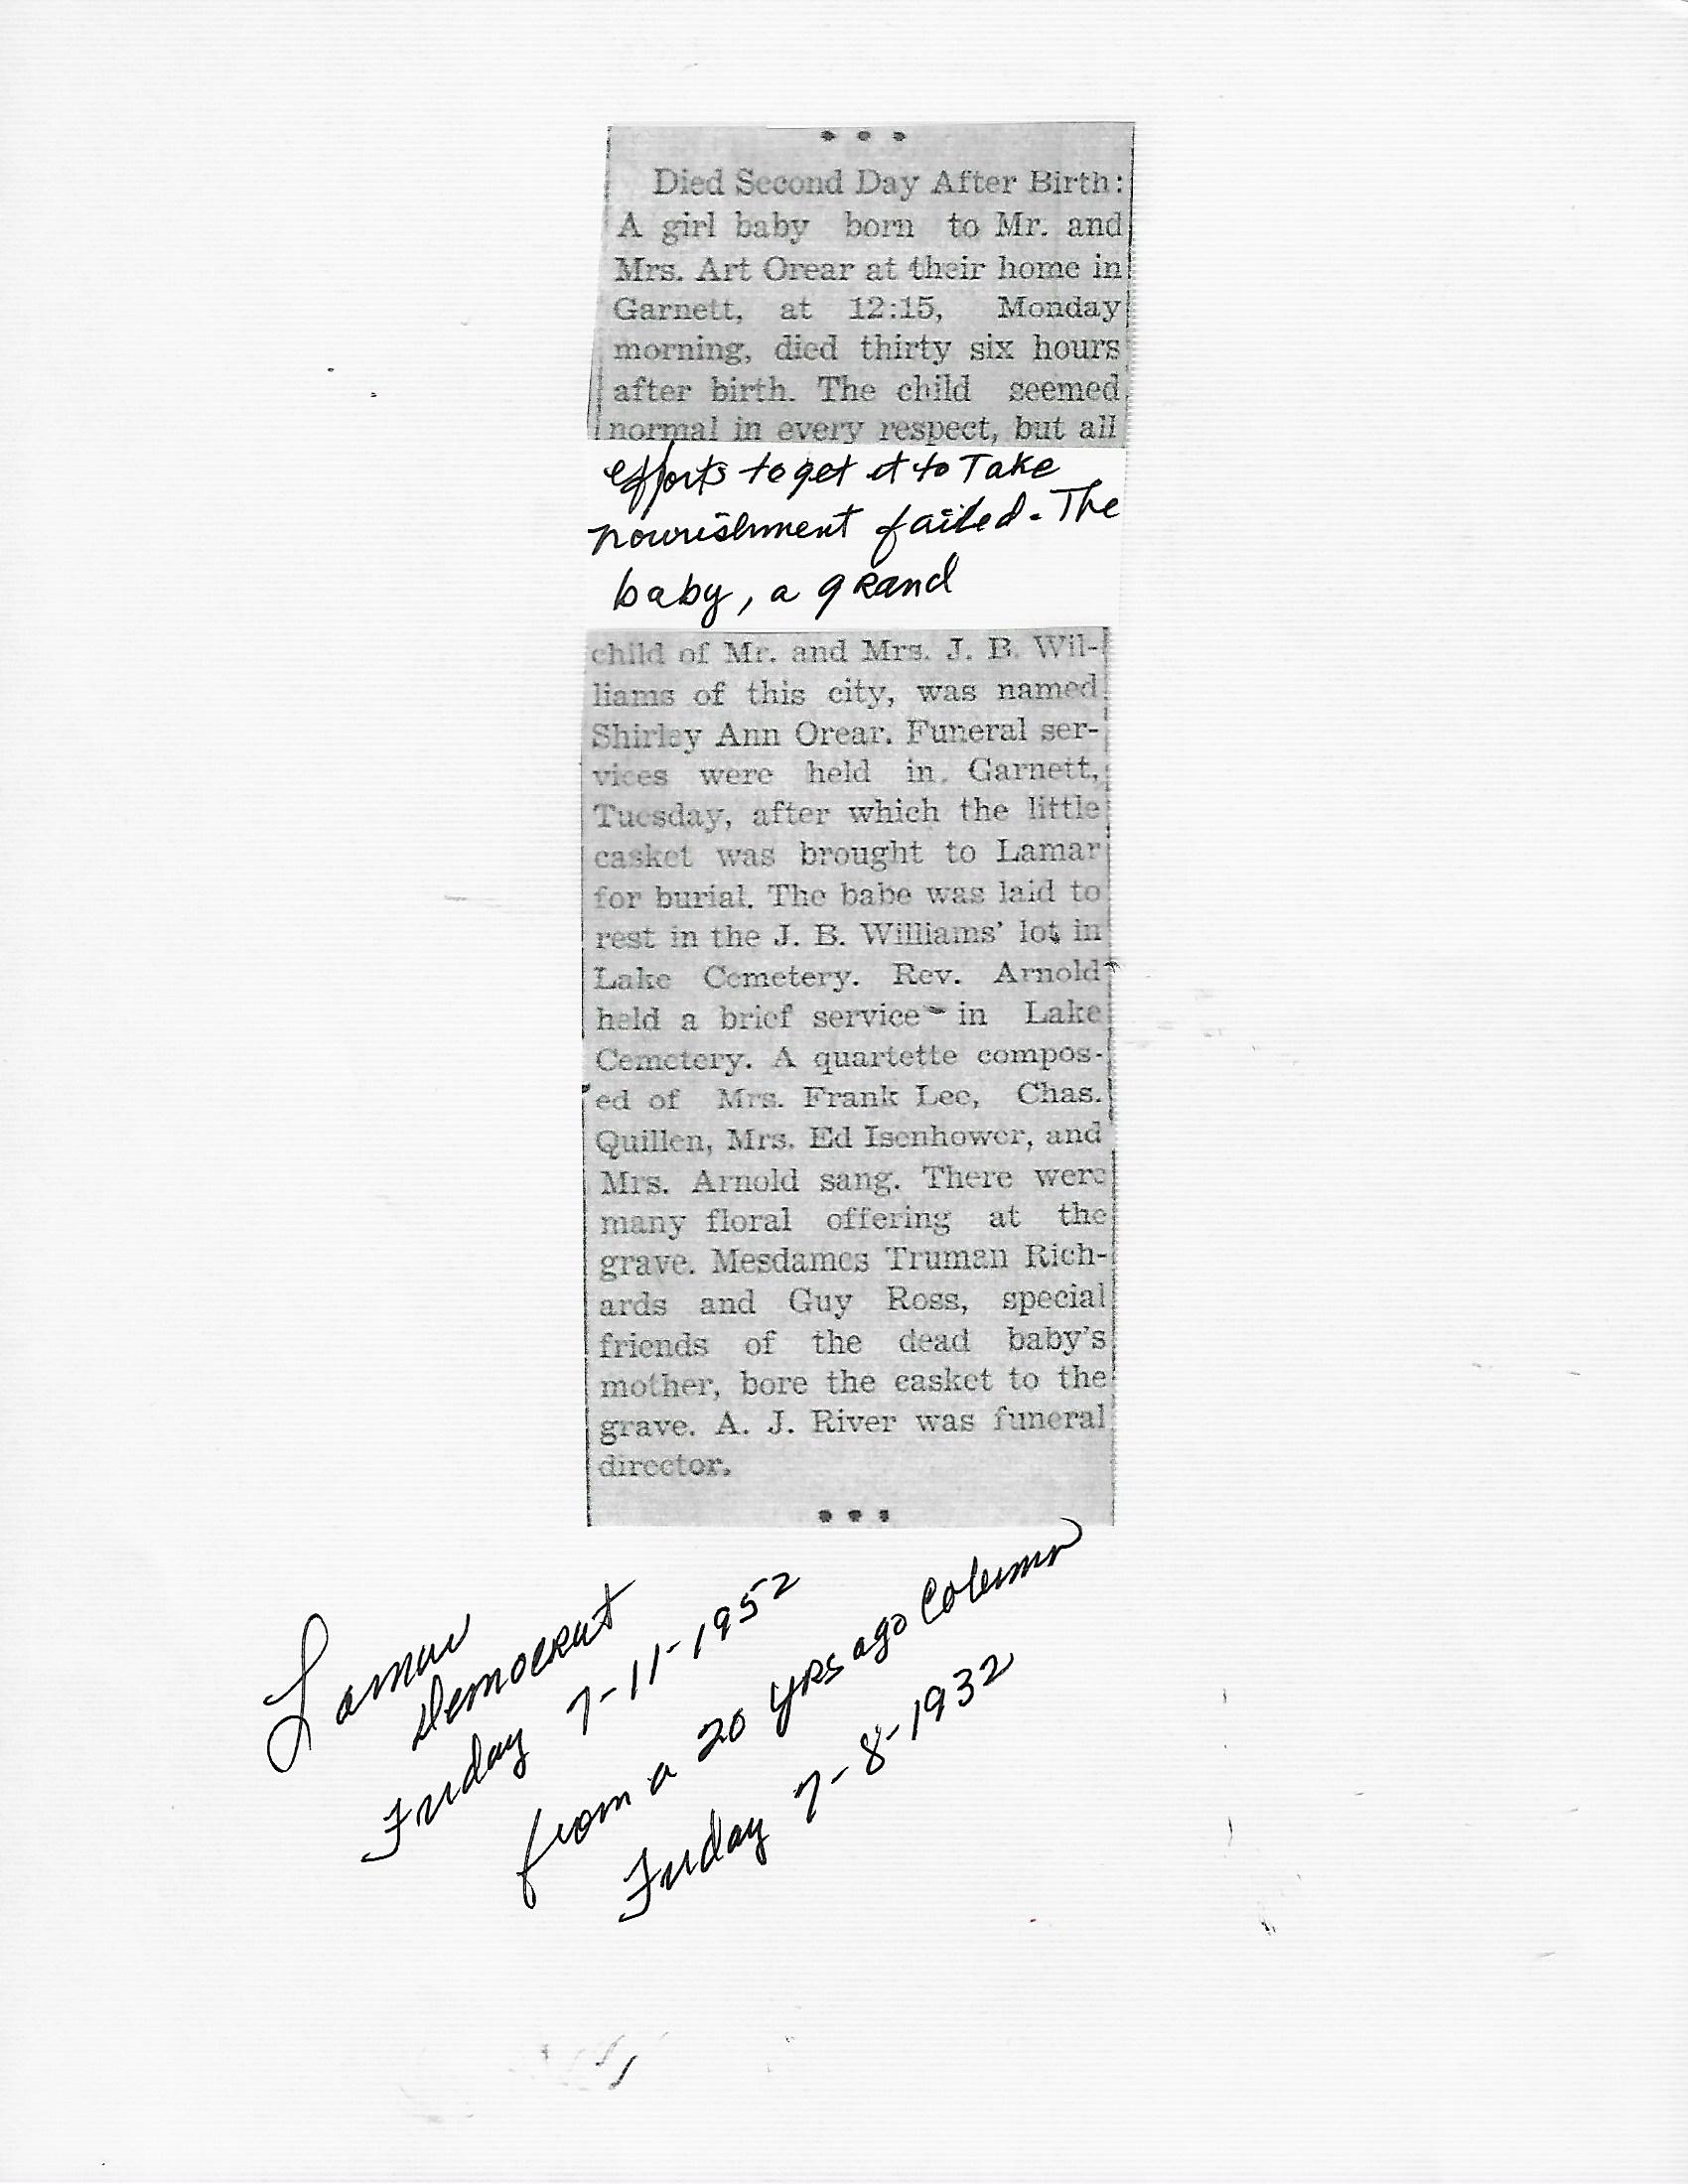 • • •
Died Second Day After Birth:
A girl baby born to Mr. and
Mrs. Art Orear at their home in
Garnett, at 12:15, Monday
morning, died thirty six hours
after birth. The child seemed
normal in every respect, but all
efforts to get it to Take
nourishment failed. The
baby, a grand
child of Mr. and Mrs. J. B. Wil-
liams of this city, was named
Shirley Ann Orear. Funeral ser-
vices were held in Garnett,
Tuesday, after which the little
casket was brought to Lamar
for burial. The babe was laid to
rest in the J. B. Williams' lot in
Lake Cemetery. Rev. Arnold
held a brief service in Lake
Cemetery. A quartette compos-
ed of Mrs. Frank Lee, Chas.
Quillen, Mrs. Ed Isenhower, and
Mrs. Arnold sang. There were
many floral offering at the
grave. Mesdames Truman Rich-
ards and Guy Ross, special
friends of the dead baby's
mother, bore the casket to the
grave. A. J. River was funeral
director.
• • •
Lamar
Democrat
Friday 7-11-1952
from a 20 yrs ago Column
Friday 7-8-1932